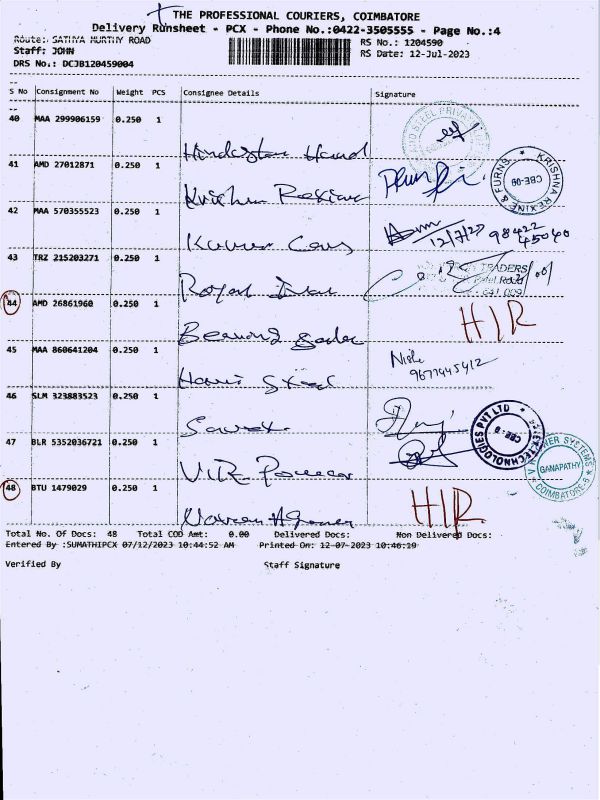 THE PROFESSIONAL COURIERS, COIMBATORE
Delivery Runsheet - PCX - Phone No.:0422-3505555 - Page No.:4
Route: SATHYA MURTHY ROAD
RS No.: 1204590
Staff: JOHN
RS Date: 12-Jul-2023
DRS No.: DCJB120459004
S No Consignment No Weight PCS Consignee Details Signature
40 MAA 299906159 0.250 1
Hindustan
41 AMD 27012871 0.250 1
Krishna Rexine
KRISHNA REXINE & FURNS CBE-09
42 MAA 570355523 0.250 1
Kumar
12/7/23 98422
45040
43 TRZ 215203271 0.250 1
Royal
TRADERS
641 009
44 AMD 26861960 0.250 1
HIR
45 MAA 860641204 0.250 1
Nishi
9677445412
46 SLM 323883523 0.250 1
TECHNOLOGIES PVT LTD
47 BLR 5352036721 0.250 1
SYSTEMS
GANAPATHY
COIMBATORE-6
48 BTU 1479029 0.250 1
HIR
Naveen
Total No. Of Docs: 48 Total COD Amt: 0.00 Delivered Docs: Non Delivered Docs:
Entered By :SUMATHIPCX 07/12/2023 10:44:52 AM Printed On: 12-07-2023 10:46:19
Verified By Staff Signature